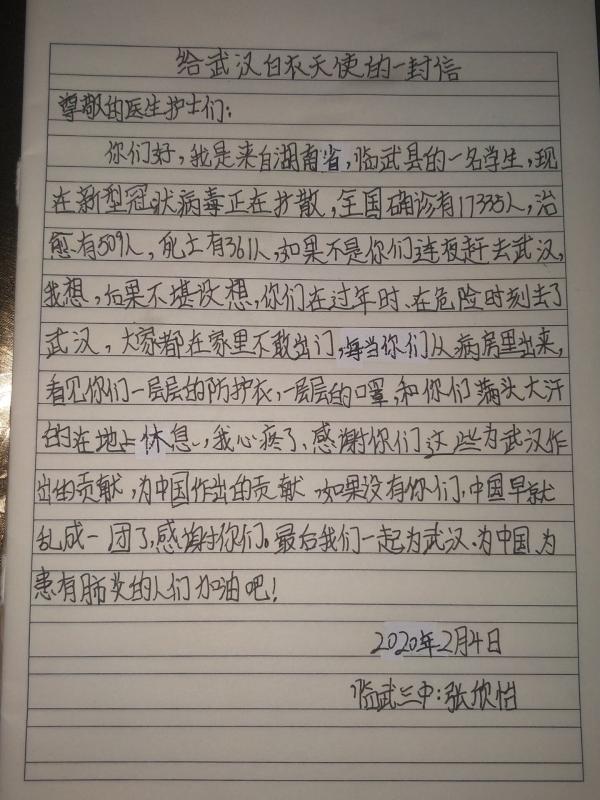 给武汉白衣天使的一封信
尊敬的医生护士们：
你们好，我是来自湖南省，临武县的一名学生，现
在新型冠状病毒正在扩散，全国确诊有17335人，治
愈有509人，死亡有361人，如果不是你们连夜赶去武汉，
我想，后果不堪设想，你们在过年时、在危险时刻去了
武汉，大家都在家里不敢出门，每当你们从病房里出来，
看见你们一层层的防护衣，一层层的口罩，和你们满头大汗
的在地上休息，我心疼了、感谢你们这些为武汉作
出的贡献，为中国作出的贡献，如果没有你们，中国早就
乱成一团了，感谢你们。最后我们一起为武汉、为中国、为
患有肺炎的人们加油吧！
2020年2月4日
临武三中：张欣怡